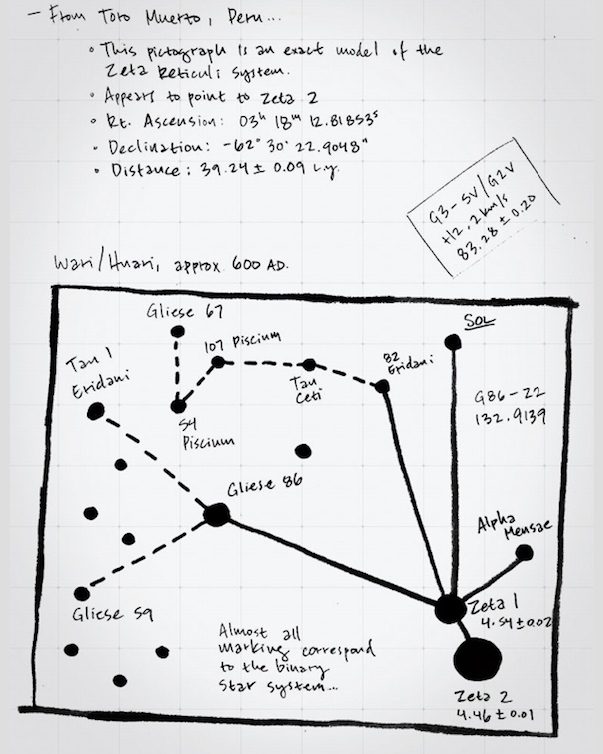 - From Toro Muerto, Peru...
• This pictograph is an exact model of the
Zeta Reticuli system.
• Appears to point to Zeta 2
• Rt. Ascension: 03h 18m 12.81853s
• Declination: -62° 30' 22.9048"
• Distance: 39.24 ± 0.09 l.y.
G3-5V/G2V
+12.2 km/s
83.28 ± 0.20
Wari/Huari, approx. 600 AD.
Gliese 67
107 Piscium
SOL
Tau 1
Eridani
Tau
Ceti
82
Eridani
54
Piscium
G86-22
132.9139
Gliese 86
Alpha
Mensae
Gliese 59
Zeta 1
4.54 ± 0.02
Almost all
marking correspond
to the binary
star system...
Zeta 2
4.46 ± 0.01